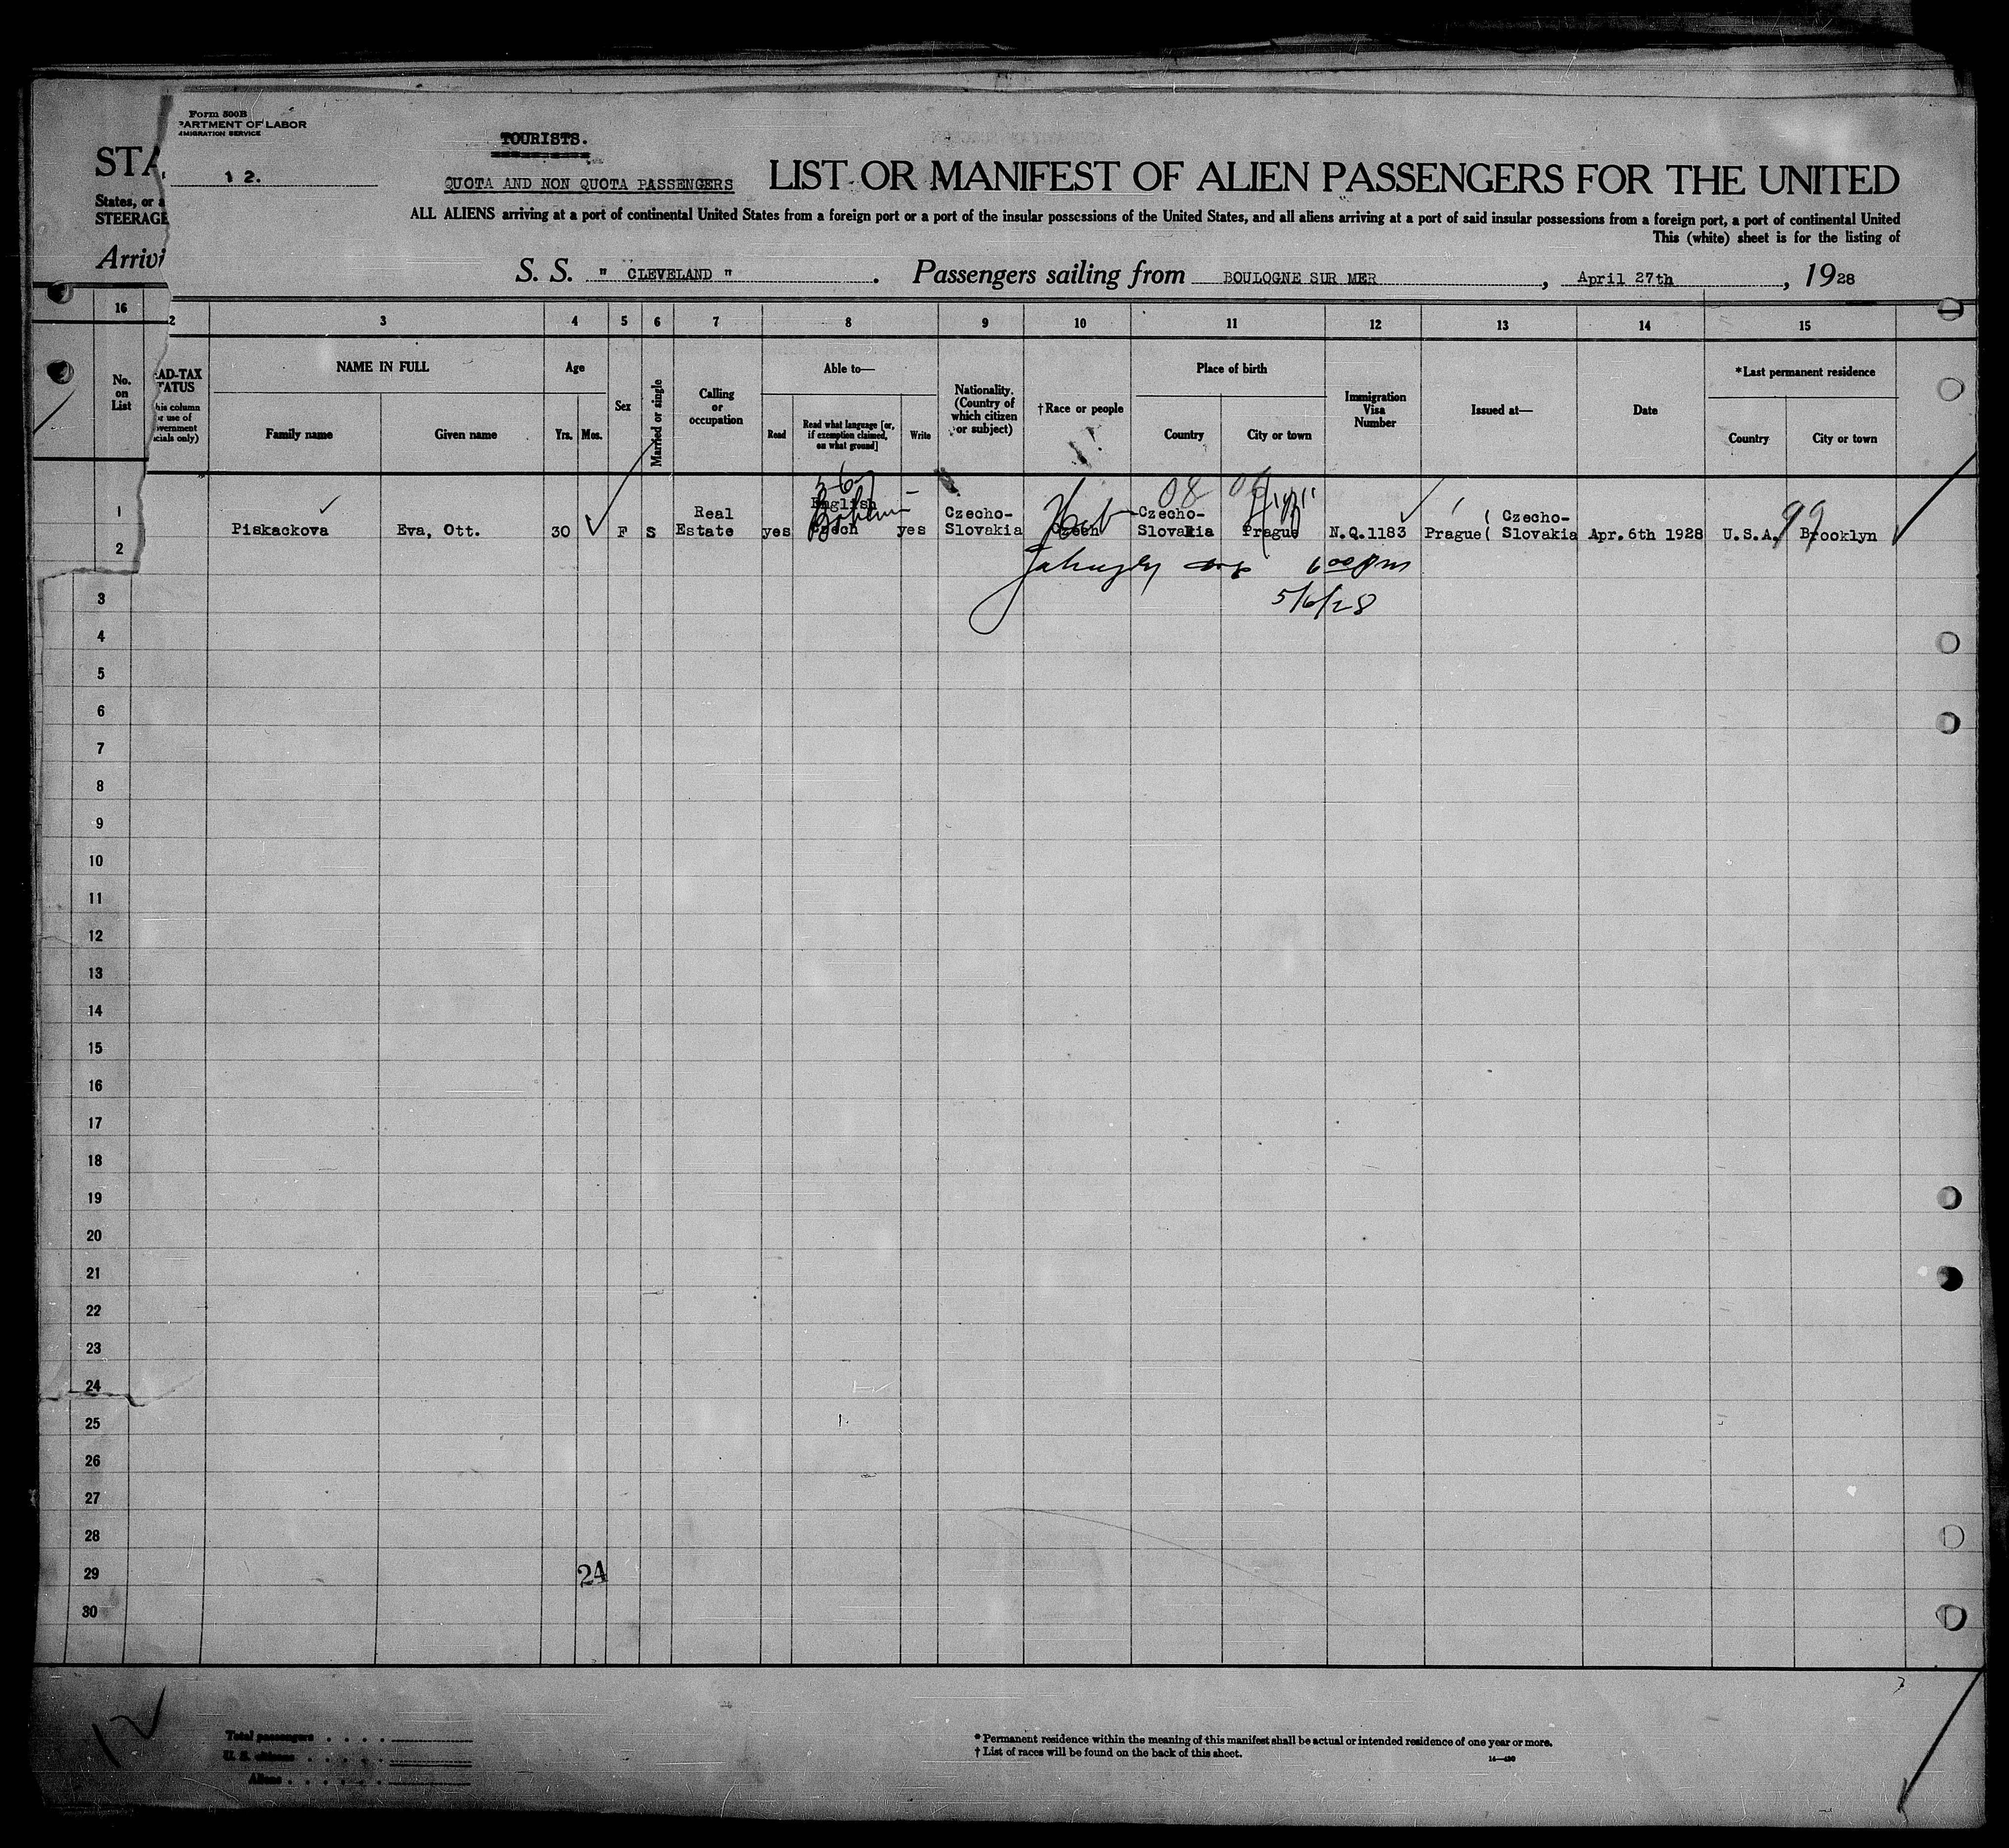 Form 500B
PARTMENT OF LABOR
MIGRATION SERVICE
STA
12.
TOURISTS.
QUOTA AND NON QUOTA PASSENGERS
LIST OR MANIFEST OF ALIEN PASSENGERS FOR THE UNITED
States, or a
STEERAGE
ALL ALIENS arriving at a port of continental United States from a foreign port or a port of the insular possessions of the United States, and all aliens arriving at a port of said insular possessions from a foreign port, a port of continental United
This (white) sheet is for the listing of
Arrivi
S. S. " CLEVELAND ". Passengers sailing from BOULOGNE SUR MER, April 27th, 1928
16 2 3 4 5 6 7 8 9 10 11 12 13 14 15
No. on List
EAD-TAX
TATUS
his column
or use of
vernment
cials only)
NAME IN FULL
Family name
Given name
Age
Yrs.
Mos.
Sex
Married or single
Calling or occupation
Able to—
Read
Read what language [or, if exemption claimed, on what ground]
Write
Nationality. (Country of which citizen or subject)
†Race or people
Place of birth
Country
City or town
Immigration Visa Number
Issued at—
Date
*Last permanent residence
Country
City or town
5-6
08 06
99
1 Piskackova Eva, Ott. 30 F S Real Estate yes English Czech yes Czecho-Slovakia Czech Czecho-Slovakia Prague N.Q.1183 Prague ( Czecho-Slovakia Apr.6th 1928 U.S.A. Brooklyn
Bohemi
2
6 00 pm
5/6/28
3
4
5
6
7
8
9
10
11
12
13
14
15
16
17
18
19
20
21
22
23
24
25
26
27
28
29
24
30
12
Total passengers . . . .
U. S. citizens . . . . .
Aliens . . . . . .
* Permanent residence within the meaning of this manifest shall be actual or intended residence of one year or more.
† List of races will be found on the back of this sheet.
14—430